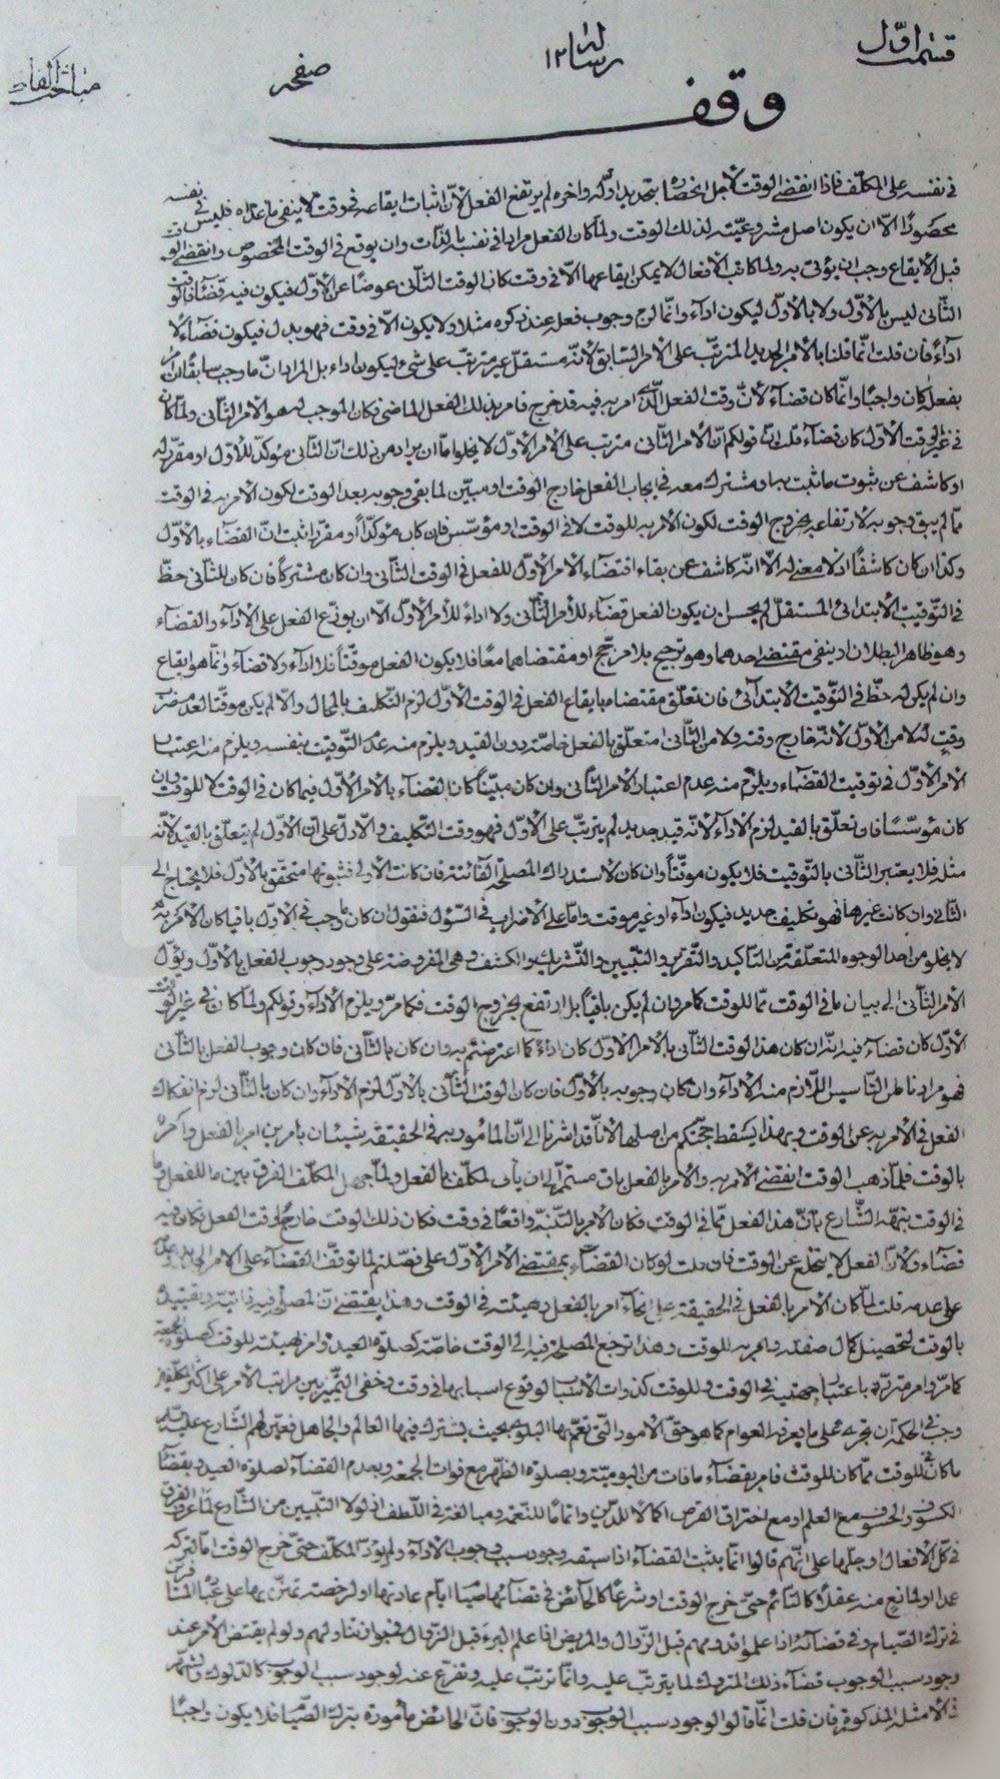 قسمت اوّل
رسالة ١٢
صفحه
مباحث الفاظ
وقف
فى نفسه على المكلّف فاذا انقضى الوقت لاجل انحصاره بتحديد اوّله واخره لم يرتفع الفعل لانّ اثبات ايقاعه فى وقت لا ينفى ما عداه فليس فى نفسه
محصورًا الّا ان يكون اصل مشروعيّته لذلك الوقت ولمّا كان الفعل مرادا فى نفسه بالذّات وان يوقع فى الوقت المخصوص وانقضى الو
قبل الايقاع وجب ان يؤتى به ولمّا كانت الافعال لا يمكن ايقاعها الّا فى وقت كان الوقت الثّانى عوضًا عن الاوّل فيكون فيه قضآءً فالوقت
الثّانى ليس بالاوّل ولا بالاوّل ليكون ادآء وانّما لرج وجوب فعله عند ذكره مثلا ولا يكون الّا فى وقت فهو بدل فيكون قضآء لا
ادآءً فان قلت انّما قلنا بالامر الجديد المترتّب على الامر السّابق لانّه مستقلّ غير مترتّب على شىء ليكون اداء بل المراد انّ ما وجب سابقًا ان امر
بفعله كان واجبًا وانّما كان قضآءً لانّ وقت الفعل الّذى امر به فيه قد خرج فامر بذلك الفعل الماضى فكان الموجب له هو الامر الثّانى ولمّا كان
فى غير الوقت الاوّل كان قضآء قلت انّ قولكم انّ الامر الثّانى مترتّب على الامر الاوّل لا يخلو امّا ان يراد من ذلك انّ الثّانى مؤكّد للاوّل او مقرّر له
او كاشف عن ثبوت ما ثبت به او مشترك معه فى ايجاب الفعل خارج الوقت او مبيّن لما بقى وجوبه بعد الوقت لكون الامر به فى الوقت
ممّا لم يبق وجوبه لارتفاعه بخروج الوقت لكون الامر به للوقت لا فى الوقت او مؤسّس فان كان مؤكّدًا او مقرّرا ثبت انّ القضآء بالاوّل
وكذا ان كان كاشفًا اذ لا معنى له الّا انّه كاشف عن بقاء اقتضآء الامر الاوّل للفعل فى الوقت الثّانى وان كان مشتركًا فان كان للثّانى حظّ
فى التّوقيت الابتدائى المستقلّ لم يحسن ان يكون الفعل قضآء للامر الثّانى ولا اداءً للامر الاوّل الّا ان يوزّع الفعل على الادآء والقضآء
وهو ظاهر البطلان او ينفى مقتضى احدهما وهو ترجيح بلا مرجّح او مقتضاهما معًا فلا يكون الفعل موقّتًا فلا ادآء ولا قضآء وانّما هو ايقاع
وان لم يكن له حظّ فى التّوقيت الابتدآئى فان تعلّق مقتضاه بايقاع الفعل فى الوقت الاوّل لزم التّكليف بالمحال والّا لم يكن موقّتا لعدم
وقت له لا من الاوّل لانّه خارج وقته ولا من الثّانى امتعلّق بالفعل خاصّة دون القيد ويلزم منه عدم التّوقيت بنفسه ويلزم منه اعتبار
الامر الاوّل فى توقيت القضآء ويلزم منه عدم اعتبار الامر الثّانى وان كان مبيّنًا كان القضآء بالامر الاوّل فيما كان فى الوقت لا للوقت وان
كان مؤسّسًا فان تعلّق بالقيد لزم الادآء لانّه قيد جديد لم يترتّب على الاوّل فهو وقت التّكليف والاوّل على انّ الاوّل لم يتعلّق بالقيد لانّه
مثله فلا يعتبر الثّانى بالتّوقيت فلا يكون موقّتًا وان كان لاستدراك المصلحة الفائتة فان كانت الاولى فثبوتها متحقّق بالاوّل فلا يحتاج الى
الثّانى وان كانت غيرها فهو تكليف جديد فيكون ادآء او غير موقت وامّا على الاضراب فى السّؤل فنقول ان كان ما وجب فى الاوّل باقيا كان الامر به
لا يخلو من احد الوجوه المتعلّقة من التّاكيد والتّقرير والتّبيين والتّشريك والكشف وهى المفروضة على وجود وجوب الفعل بالاوّل ويؤل
الامر الثّانى الى بيان ما فى الوقت ممّا للوقت كما مرّ وان لم يكن باقيًا بل ارتفع بخروج الوقت فكما مرّ ويلزم الادآء وقولكم ولمّا كان فى غير الوقت
الاوّل كان قضآء فيه انّه ان كان هذا الوقت الثّانى بالامر الاوّل كان اداءً كما اعترضتم به وان كان بالثّانى فان كان وجوب الفعل بالثّانى
فهو مرادنا من التّاسيس اللّازم منه الادآء وان كان وجوبه بالاوّل فان كان الوقت الثّانى بالاوّل لزم الادآء وان كان بالثّانى لزم انفكاك
الفعل فى الامر به عن الوقت وبهذا يسقط حجّتكم من اصلها لانّا قد اشرنا الى انّ المأمور به فى الحقيقة شيئان بامرين امر بالفعل وامره
بالوقت فلمّا ذهب الوقت انقضى الامر به والامر بالفعل باق مستمرّ الى ان يأتى المكلّف بالفعل ولمّا جهل المكلّف الفرق بين ما للفعل وما
فى الوقت نبّهه الشّارع بانّ هذا الفعل ممّا فى الوقت فكان الامر بالتّنبّه واقعًا فى وقت فكان ذلك الوقت خارج لوقت الفعل فكان فيه
قضآء ولانّ الفعل لا يتخلّع عن الوقت فان قلت لو كان القضآء بمقتضى الامر الاوّل على ما فصّلتم لما توقّف القضآء على الامر الجديد
على عدمه قلت لمّا كان الامر بالفعل فى الحقيقة على انحآء امر بالفعل وهيئته فى الوقت وهذا يقتضى انّ المصلحة فيه ذاتيّة وتقييده
بالوقت لتحصيل كمال صفته وامر به للوقت وهذا ترجع المصلحة فيه الى الوقت خاصّة كصلوة العيد وامر بهيئته للوقت كصلوة الجمعة
كما مرّ وامر متردّد باعتبار جهتيه فى الوقت وللوقت كذوات الاسباب لوقوع اسبابها فى وقت وخفى التّمييز بين مراتب الامر على اكثر المكلّفين
وجب فى الحكمة ان تجرى على ما يعرفه العوام كما هو حقّ الامور الّتى تعمّ بها البلوى بحيث يشترك فيها العالم والجاهل فعيّن لهم الشّارع عليه السّلم
ما كان للوقت ممّا كان للوقت فامر بقضآء ما فات من اليوميّة وبصلوة الظّهر مع فوات الجمعة وبعدم القضآء لصلوة العيد وبقضآء
الكسوف والخسوف مع العلم او مع احتراق القرص اكمالا للدّين واتمامًا للنّعمة ومبالغة فى اللّطف اذ لولا التّبيين من الشّارع لما عرف الفرق
فى كلّ الافعال او جلّها على انّهم قالوا انّما يثبت القضآء اذا سبقه وجود سبب وجوب الادآء ولم يؤدّ المكلّف حتّى خرج الوقت امّا تركه
عمدا او لمانع منه عقلًا كالنّائم حتّى خرج الوقت او شرعًا كالحآئض فى قضآئها صيام ايّام عادتها او لرخصة
فى ترك الصّيام وفى قضآئه اذا علموا قدومهم قبل الزّوال والمريض اذا علم البرء قبل الزّوال فى جواز تناولهم ولو لم يقتض الامر عند
وجود سبب الوجوب قضآء ذلك المتروك لما يترتّب عليه وانّما ترتّب عليه وتفرّع عنه لوجود سبب الوجوب كالدّلوك وشهر
فى الامثلة المذكورة فان قلت انّما قالوا لوجود سبب الوجوب دون الوجوب فانّ الحائض مأمورة بترك الصّيام فلا يكون واجبًا